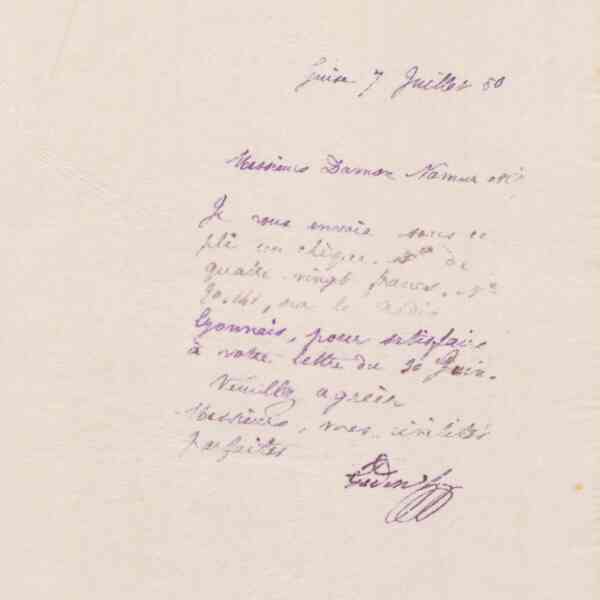 Guise 7 Juillet 80
Messieurs Damon Namur & Cie
Je vous envoie sous ce
pli un chèque de
quatre vingt francs, No
sur le Crédit
Lyonnais, pour satisfaire
à votre lettre du 30 Juin.
Veuillez agréer
Messieurs, mes civilités
parfaites
Godin